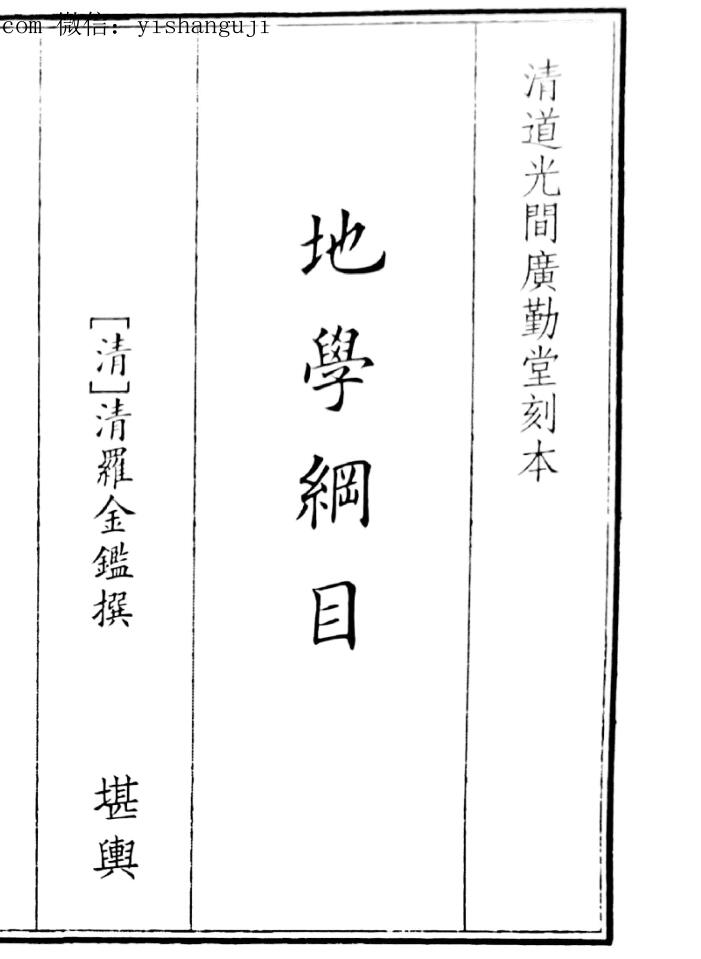 com 微信：yishanguji
清道光間廣勤堂刻本
地學綱目
［清］清羅金鑑撰
堪輿